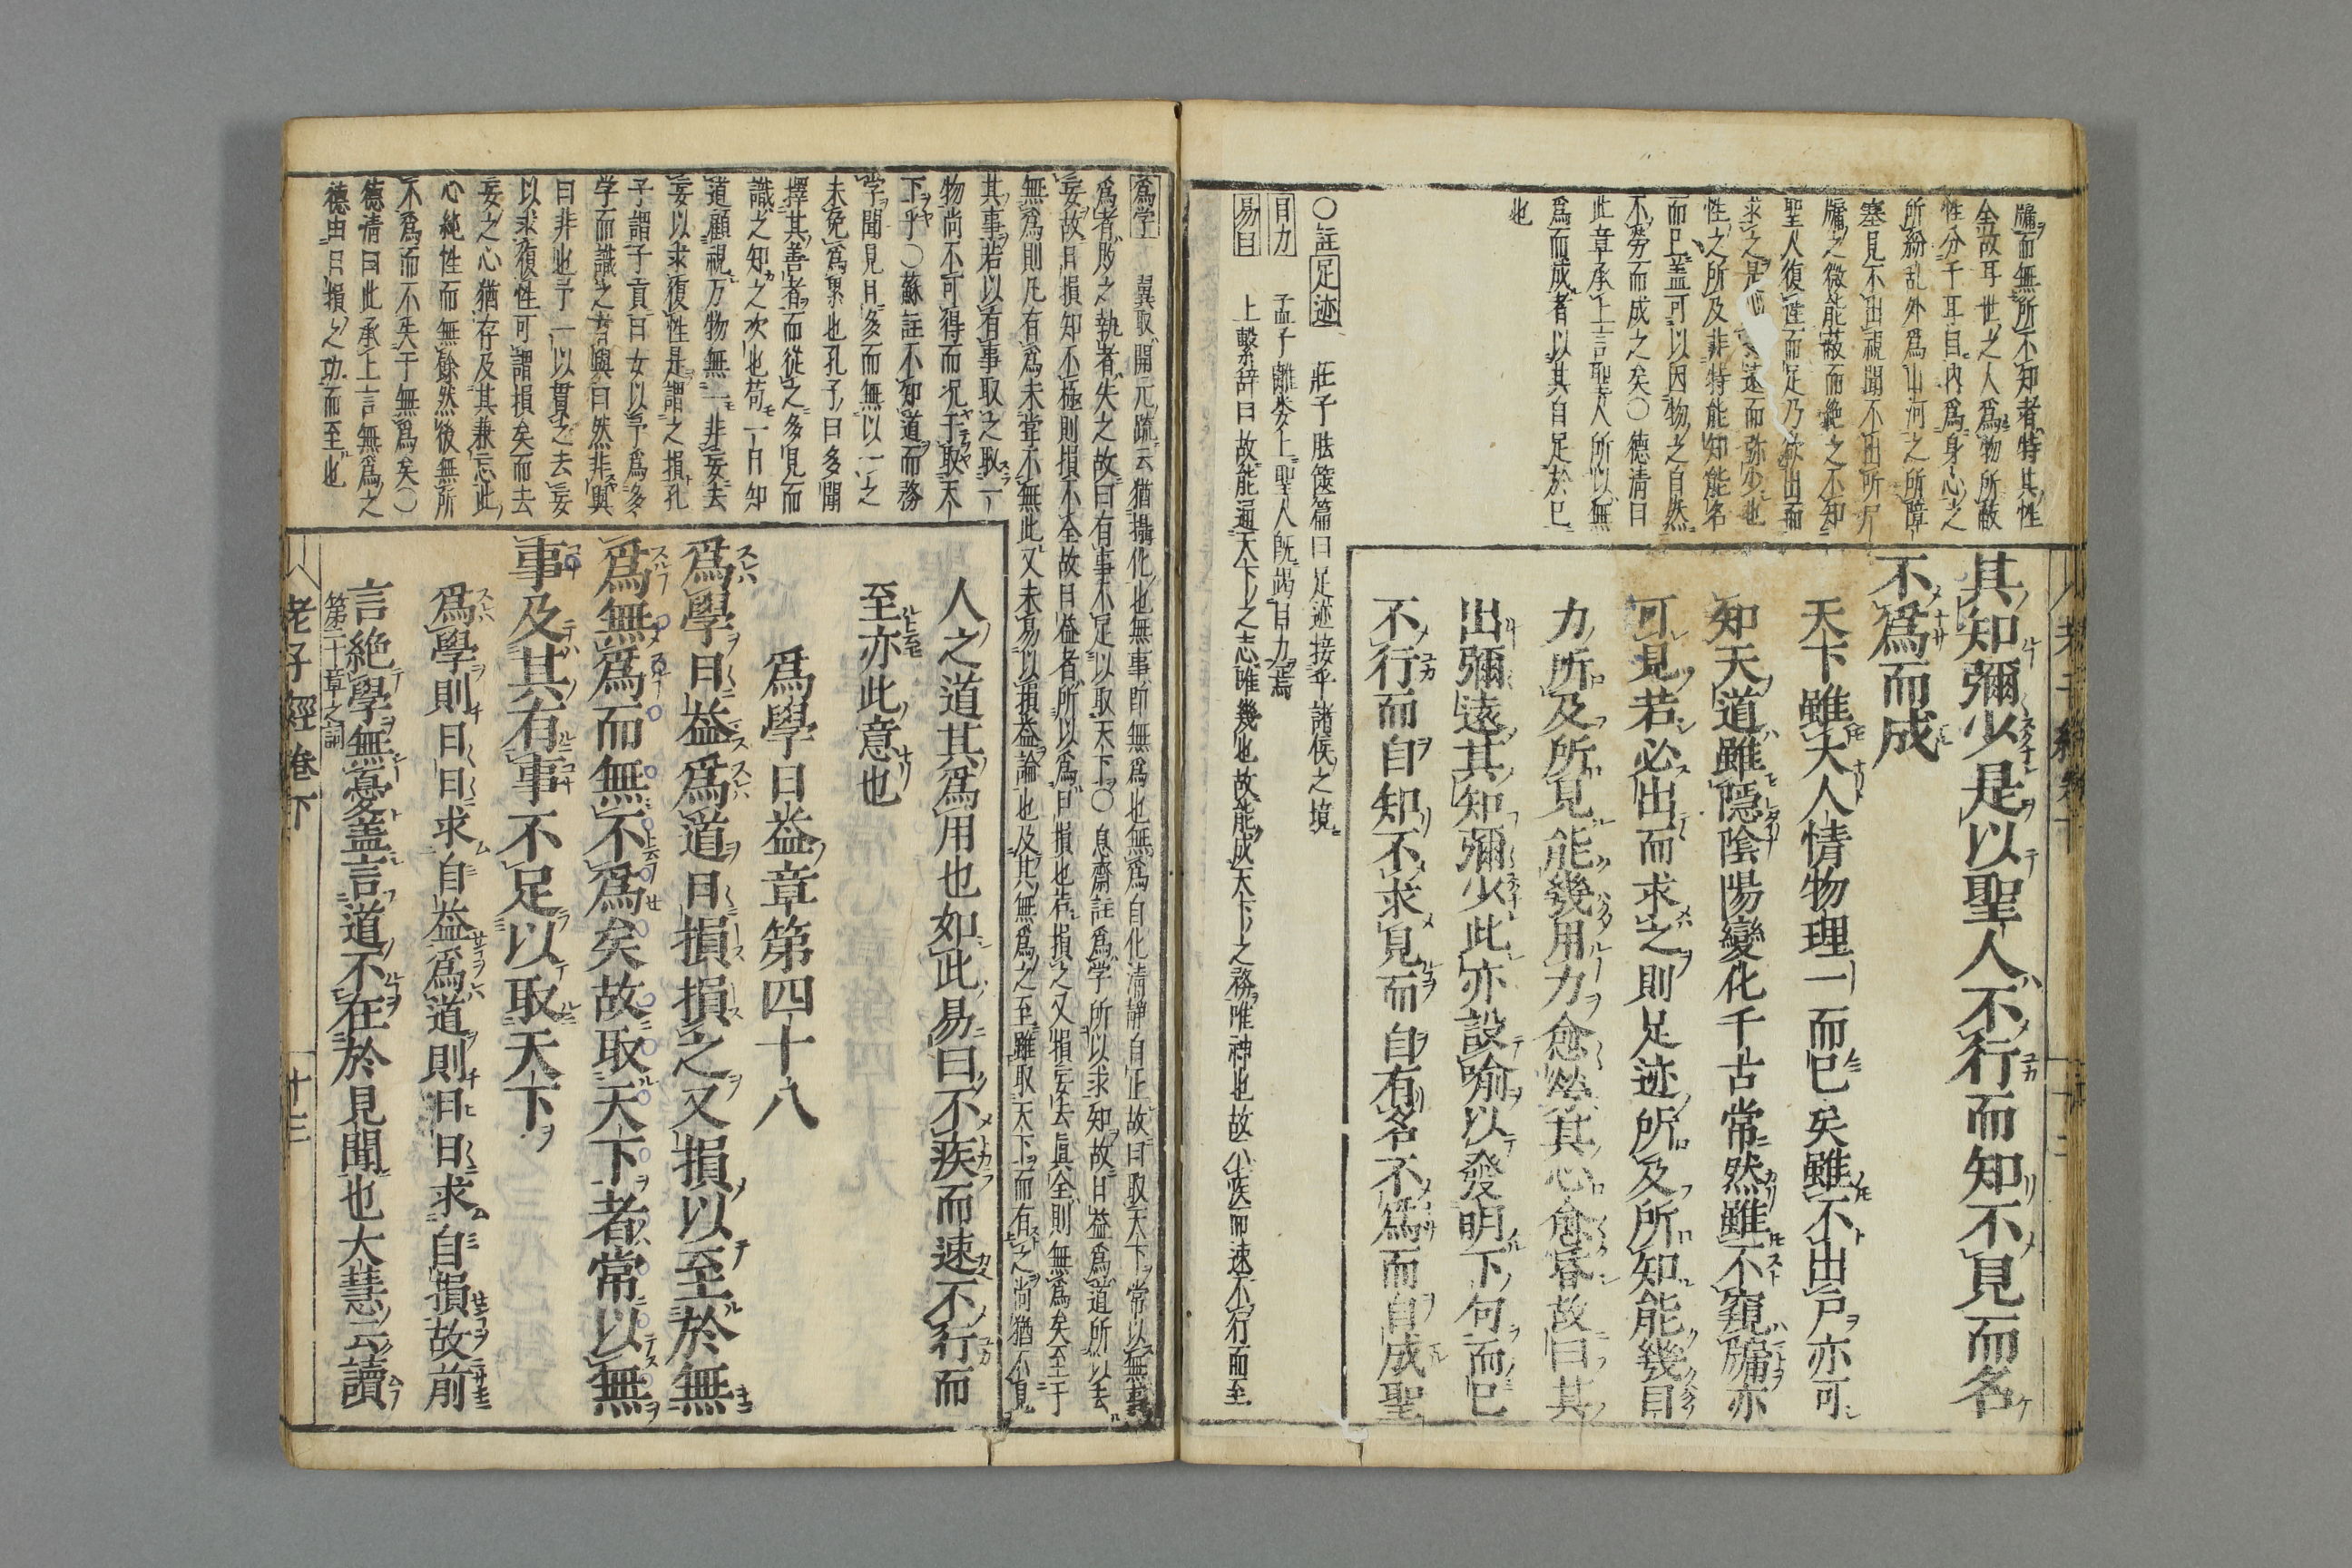 牖而無所不知者特其性
全故耳世之人為物所蔽
性分于耳目內為身心之
所紛乱外為山河之所障
塞見不出視聞不出所戸
牖之微能蔽而絶之不知
聖人復性而足乃欲出而
求之是遠而弥少也
性之所及非特能知能名
而已盖可以因物之自然
不労而成之矣○德清曰
此章承上言聖人所以無
為而成者以其自足於已
也
其知彌少是以聖人不行而知不見而名
不為而成
天下雖大人情物理一而已矣雖不出戸亦可
知天道雖隱陰陽變化千古常然雖不窺牖亦
可見若必出而求之則足迹所及所知能幾目
力所及所見能幾用力愈勞其心愈昏故曰其
出彌遠其知彌少此亦設喻以發明下句而已
不行而自知不求見而自有名不為而自成聖
○註足迹 莊子胠篋篇曰足迹接乎諸侯之境
目力 孟子離婁上聖人既竭目力焉
易曰 上繋辞曰故能通天下之志唯幾也故能成天下之務唯神也故不疾而速不行而至
為学 異取開元疏云猶攝化也無事即無為也無為自化清静自正故曰取天下常以無事
為者敗之執者失之故曰有事不足以取天下○息齋註為学所以求知故日益為道所以去
妄故日損知不極則損不全故日益者所以為日損也若損之又損妄去眞全則無為矣至于
無為則凡有為未甞不無此又未易以損益論也及其無為之至雖取天下而有之尚猶不見
其事若以有事取之取一
物尚不可得而况于取天
下乎○蘇註不知道而務
学聞見日多而無以一之
未免為累也孔子曰多聞
擇其善者而從之多見而
識之知之次也苟一日知
道顧視万物無一非妄去
妄以求復性是謂之損孔
子謂子貢曰女以予為多
学而識之者與曰然非與
曰非也予一以貫之去妄
以求復性可謂損矣而去
妄之心猶存及其兼忘此
心純性而無餘然後無所
不為而不失于無為矣○
德清曰此承上言無為之
德由日損之功而至也
人之道其為用也如此易曰不疾而速不行而
至亦此意也
為學日益章第四十八
為學日益為道日損損之又損以至於無
為無為而無不為矣故取天下者常以無
事及其有事不足以取天下
為學則日日求自益為道則日日求自損故前
言絶學無憂盖言道不在於見聞也大慧云讀
第二十章之詞
老子經卷下
十三